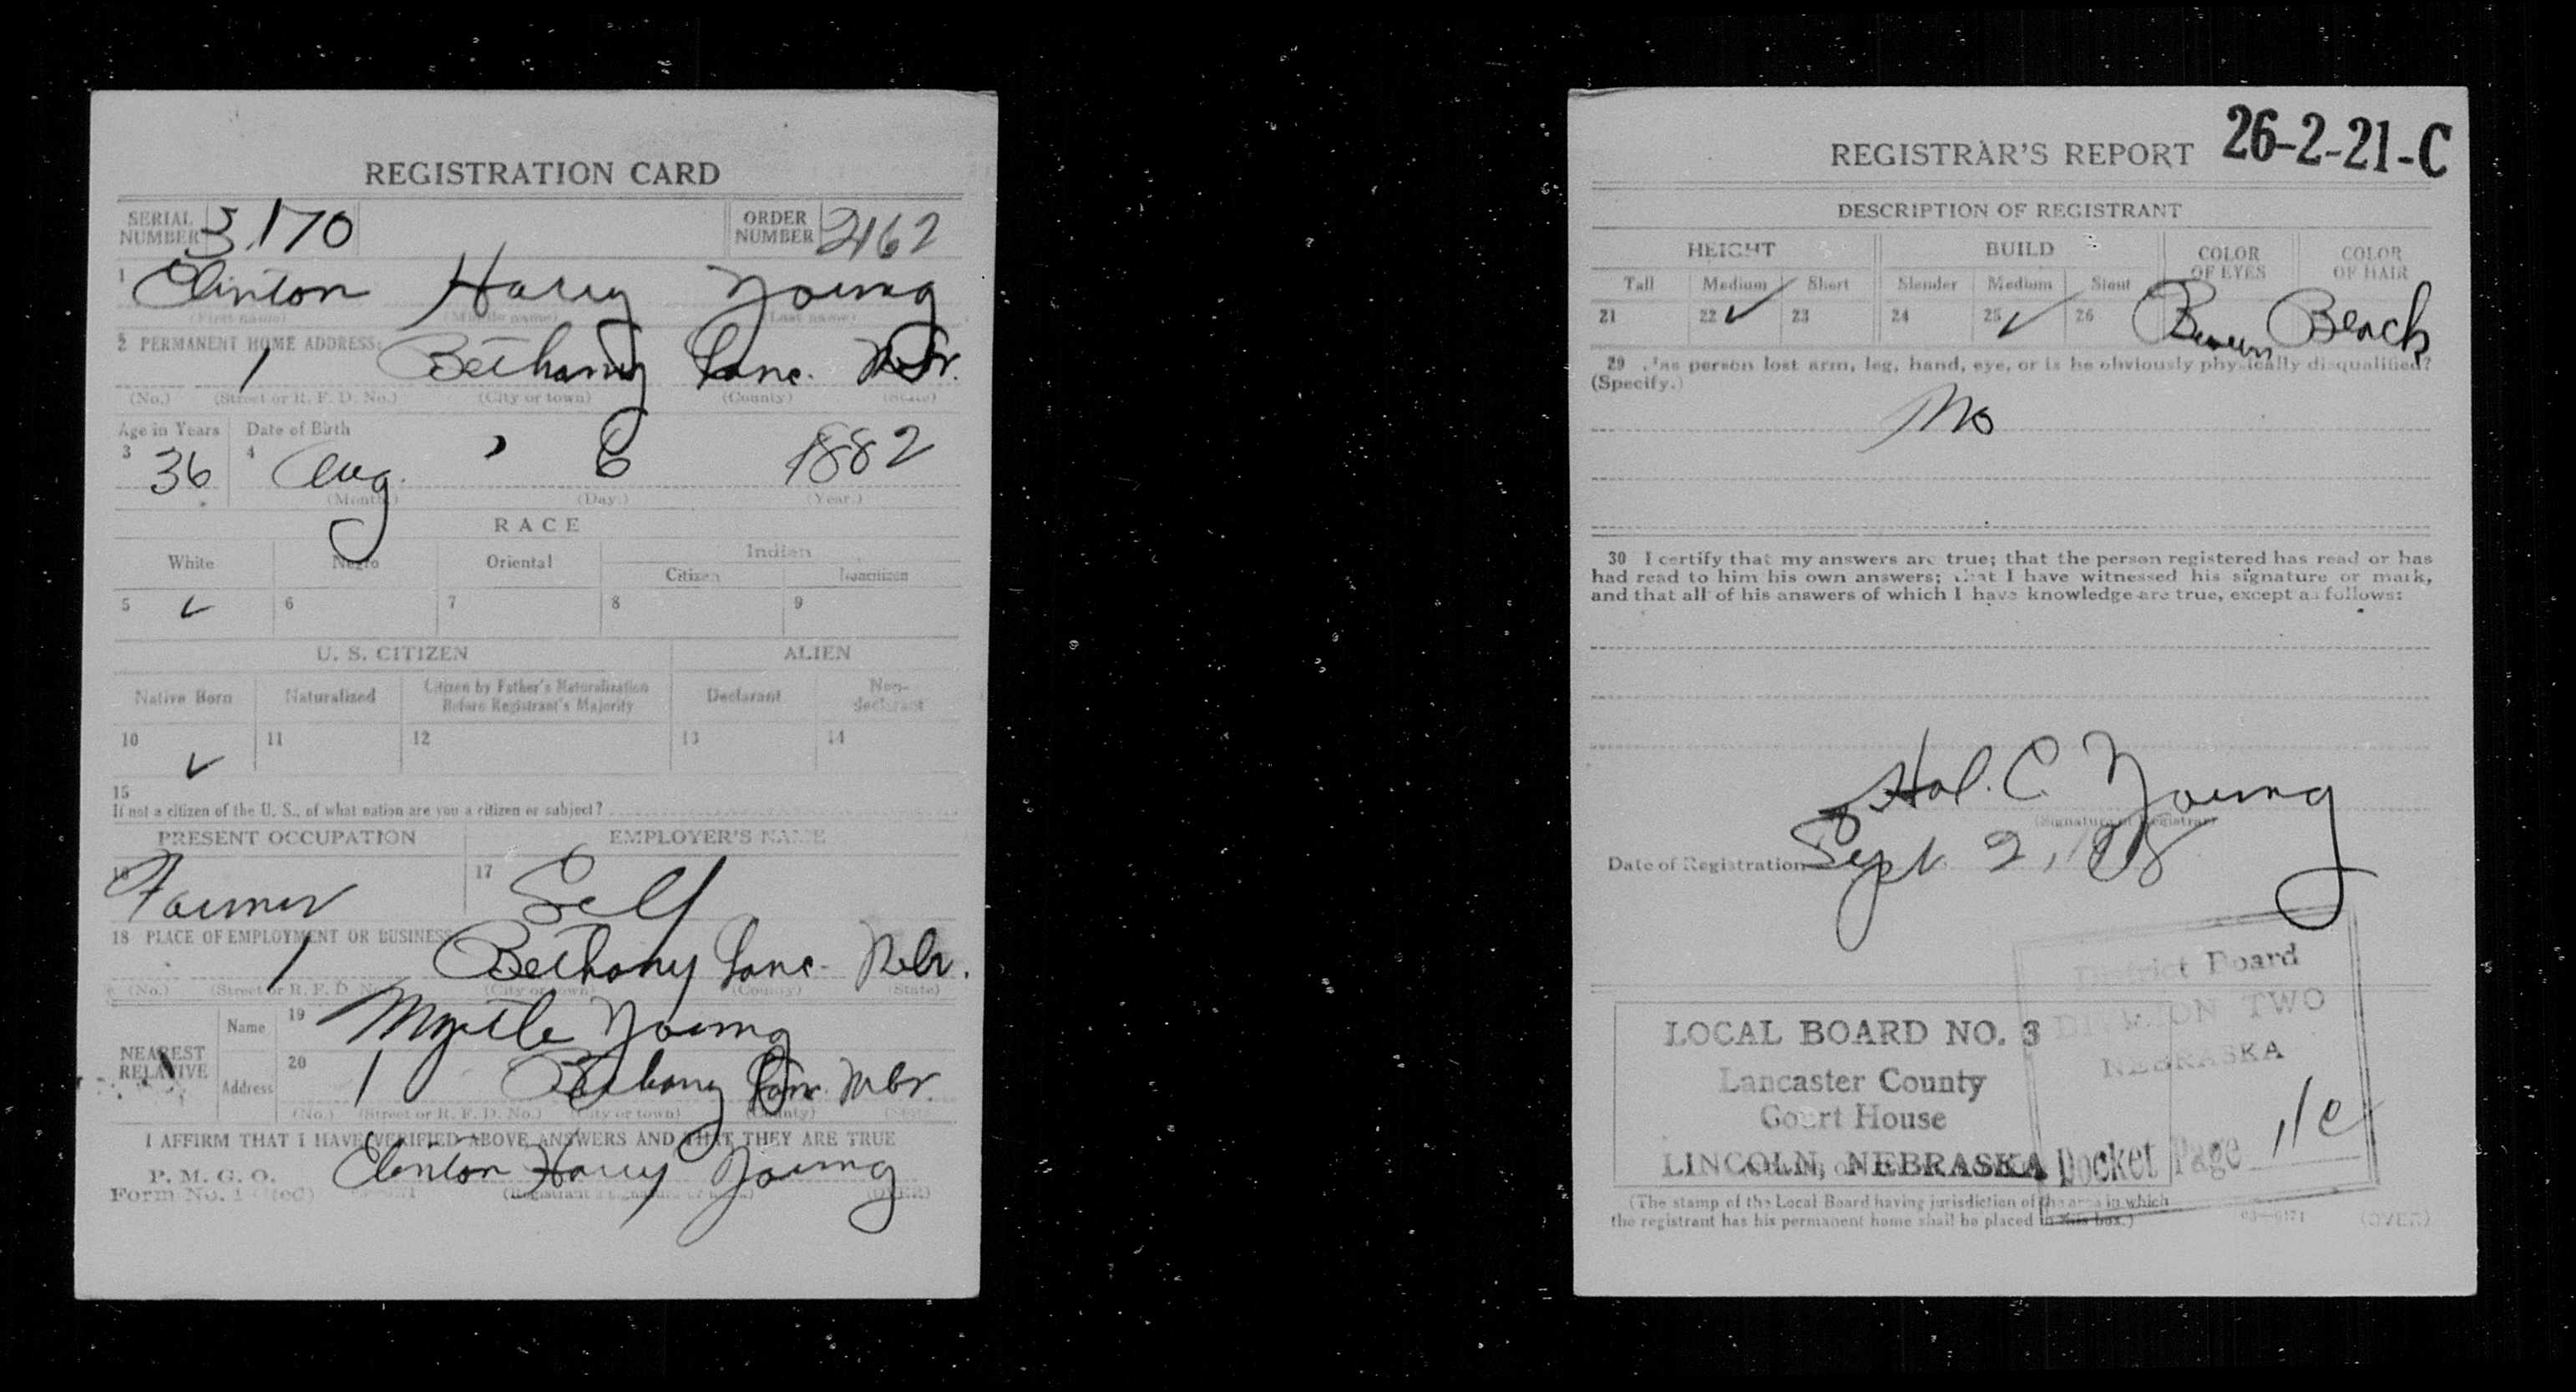 REGISTRATION CARD
SERIAL NUMBER 3170 ORDER NUMBER 2162
1 Clinton Harry Young
(First name) (Middle name) (Last name)
2 PERMANENT HOME ADDRESS:
1 Bethany Lanc. Nebr.
(No.) (Street or R. F. D. No.) (City or town) (County) (State)
Age in Years Date of Birth
3 36 4 Aug. 6 1882
(Month.) (Day.) (Year.)
RACE
White Negro Oriental Indian
Citizen Noncitizen
5 ✓ 6 7 8 9
U. S. CITIZEN ALIEN
Native Born Naturalized Citizen by Father's Naturalization Before Registrant's Majority Declarant Non-declarant
10 ✓ 11 12 13 14
15
If not a citizen of the U. S., of what nation are you a citizen or subject?
PRESENT OCCUPATION EMPLOYER'S NAME
16 Farmer 17 Self
18 PLACE OF EMPLOYMENT OR BUSINESS
1 Bethany Lanc. Nebr.
(No.) (Street or R. F. D. No.) (City or town) (County) (State)
NEAREST RELATIVE
Name 19 Myrtle Young
Address 20 1 Bethany Lanc. Nebr.
(No.) (Street or R. F. D. No.) (City or town) (County) (State)
I AFFIRM THAT I HAVE VERIFIED ABOVE ANSWERS AND THAT THEY ARE TRUE
P. M. G. O.
Form No. 1 (Red) Clinton Harry Young
(Registrant's signature or mark) (OVER)
REGISTRAR'S REPORT 26-2-21-C
DESCRIPTION OF REGISTRANT
HEIGHT BUILD COLOR OF EYES COLOR OF HAIR
Tall Medium Short Slender Medium Stout
21 22 ✓ 23 24 25 ✓ 26 Brown Black
29 Has person lost arm, leg, hand, eye, or is he obviously physically disqualified?
(Specify.)
No
30 I certify that my answers are true; that the person registered has read or has
had read to him his own answers; that I have witnessed his signature or mark,
and that all of his answers of which I have knowledge are true, except as follows:
Hal. C. Young
(Signature of Registrar)
Date of Registration Sept 2, 1918
District Board
DIVISION TWO
NEBRASKA
Docket Page
LOCAL BOARD NO. 3
Lancaster County
Court House
LINCOLN, NEBRASKA
(The stamp of the Local Board having jurisdiction of the area in which
the registrant has his permanent home shall be placed in this box.)
03—6171 (OVER)